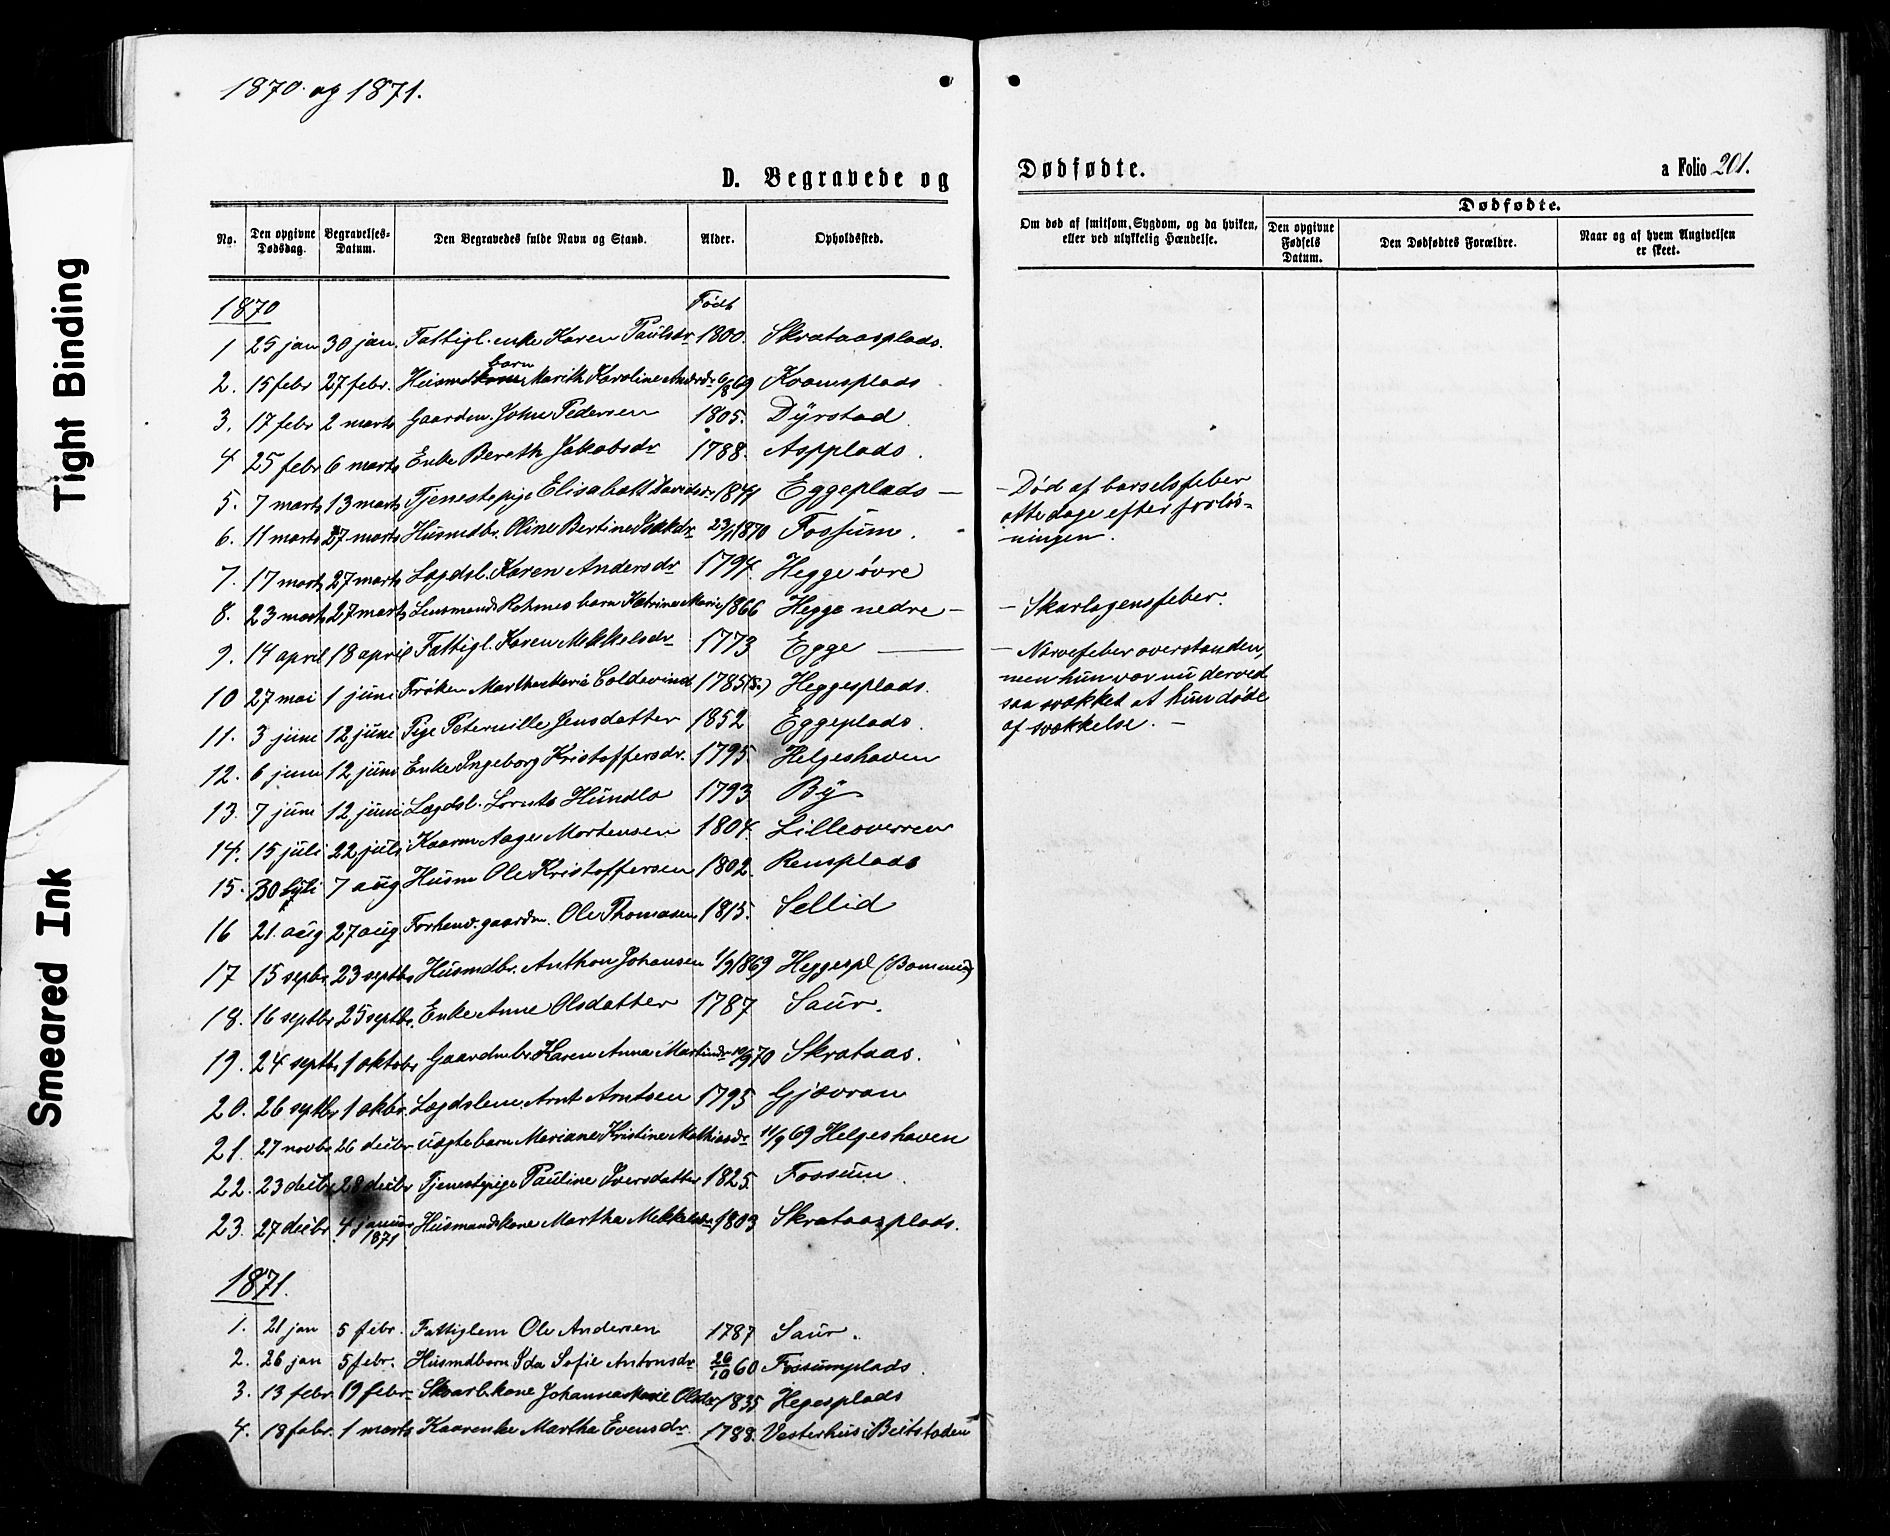 1870 og 1871.
D. Begravede og Dødfødte.
a Folio 201.
No. Den opgivne Dødsdag. Begravelses-Datum. Den Begravedes fulde Navn og Stand. Alder. Opholdssted. Om død af smitsom Sygdom, og da hvilken, eller ved ulykkelig Hændelse. Dødfødte. Den opgivne Fødsels Datum. Den Dødfødtes Forældre. Naar og af hvem Angivelsen er skeet.
1870 Født
1 25 jan 30 jan. Fattigl. enke Karen Paulsdr 1800. Skrataasplads.
2. 15 febr 27 febr. Husmd barn Marith Karoline Andrdr 6/8 69 Kvamsplads
3. 17 febr 2 marts Gaardm. John Pedersen 1805. Dyrstad
4 25 febr 6 marts Enke Bereth Jakobsdr 1788. Aspplads.
5. 7 marts 13 marts Tjenestepige Elisabeth Davidsdr 1844 Eggeplads — – Død af barselsfeber
otte dage efter forløs-
ningen.
6. 11 marts 27 marts Husmdbr. Oline Bertine 23/1 1870 Fossum.
7. 17 marts 27 marts Lægdsl. Karen Andersdr 1794. Hegge øvre
8. 23 marts 27 marts Lensmand Rohmes barn Katrine Marie 1866 Hegge nedre – – Skarlagensfeber.
9. 14 april 18 april Fattigl. Karen Mekkelsdr 1773 Egge — – Nervefeber overstanden,
men hun var nu derved
saa svækket at hun døde
af svækkelse. –
10 27 mai 1 juni Frøken Martha Maria Coldevind 1785 Heggesplads.
11. 3 juni 12 juni Pige Peternille Jensdatter 1852 Eggeplads.
12. 6 juni 12 juni Enke Ingeborg Kristoffersdr. 1795. Helgeshaven
13. 7 juni 12 juni Lægdsl. Lornts Hundlo 1793 By
14. 15 juli 22 juli Kaarm Aage Mortensen 1804. Lillesverren
15. 30 juli 7 aug Husm Ole Kristoffersen 1802. Rensplads
16 21. aug 27 aug Forhenv. gaardm. Ole Thomasen 1815. Sellid
17 15 septbr. 23 septbr Husmdbr. Anthon Johansen 1/9 1869 Heggespl
18. 16 septbr 25 septbr. Enke Anne Olsdatter 1787 Saur.
19. 24 septbr 1 oktobr Gaardmbr Karen Anna Martinsdr 10/9 70 Skrataas.
20. 26 septbr 1 okbr. Lægdslem. Arnt Arntsen 1795 Gjævran
21. 27 novbr 26 decbr Uægtebarn Meriane Kristine Mathiasdr 11/9 69 Helgeshaven
22. 23 decbr 28 decbr Tjenestpige Pauline Iversdatter 1825. Fossum.
23. 27 decbr 4 januar 1871 Husmandskone Martha Mekkelsdr 1803 Skrataasplads.
1871.
1. 21 jan 5 febr. Fattiglem Ole Andersen 1787 Saur.
2. 26 jan 5 febr. Husmdbarn Ida Sofie Antonsdr 26/10 60 Fossumplads
3. 13 febr 19 febr Johanna Marie Olsdr 1835 Hegesplads
4. 18 febr. 1 marts Kaarenke Martha Evensdr. 1788. Vesterhus i Beitstaden
Tight Binding
Smeared Ink